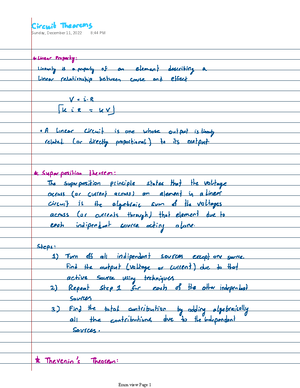 Circuit Theorems
Sunday, December 11, 2022 9:44 PM
★ Linear Property:
Linearity is a property of an element describing a
linear relationship between cause and effect
V = i R
[k i R = k V]
• A linear circuit is one whose output is linearly
related (or directly proportional) to its output
★ Superposition Theorem:
The superposition principle states that the voltage
across (or current across) an element in a linear
circuit is the algebraic sum of the voltages
across (or currents through) that element due to
each independent source acting alone
Steps:
1) Turn off all independent sources except one source.
Find the output (voltage or current) due to that
active source using techniques
2) Repeat step 1 for each of the other independent
sources
3) Find the total contribution by adding algebraically
all the contributions due to the independent
sources.
★ Thevenin's Theorem:
Exam view Page 1